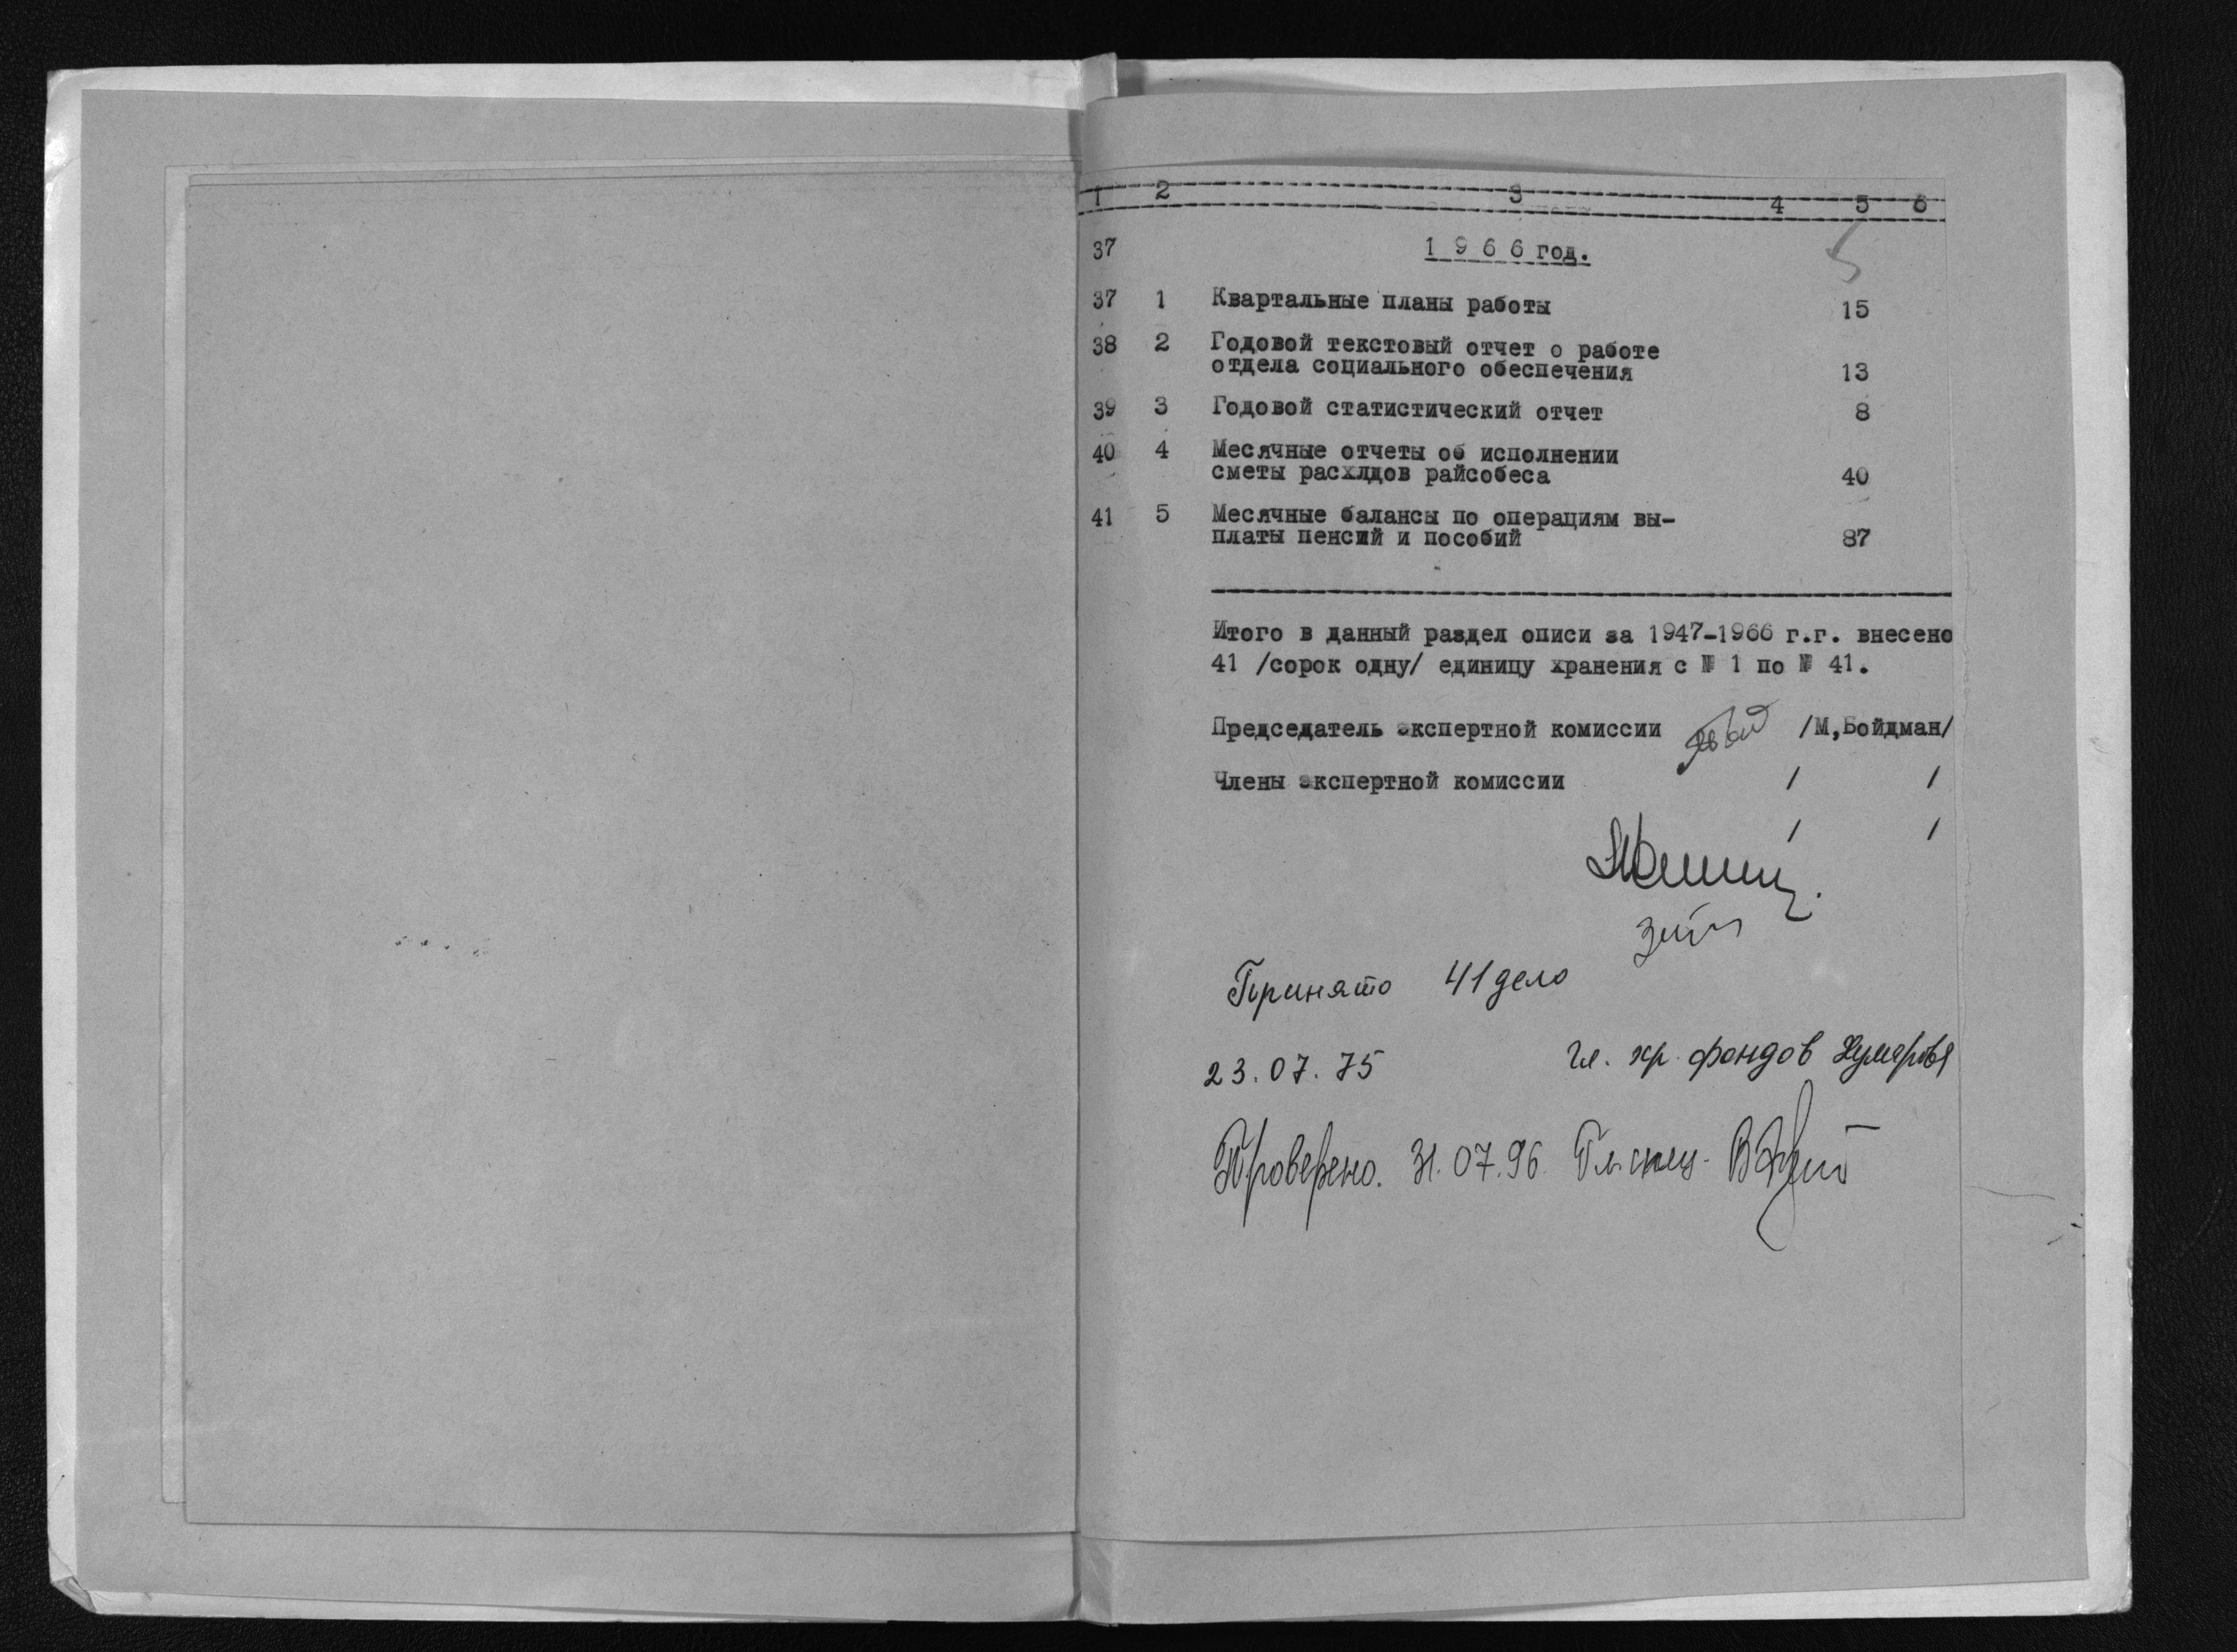 1 2 3 4 5 6
5
37 1 9 6 6 год.
37 1 Квартальные планы работы 15
38 2 Годовой текстовый отчет о работе
отдела социального обеспечения 13
39 3 Годовой статистический отчет 8
40 4 Месячные отчеты об исполнении
сметы расхлдов райсобеса 40
41 5 Месячные балансы по операциям вы-
платы пенсий и пособий 87
Итого в данный раздел описи за 1947-1966 г.г. внесено
41 /сорок одну/ единицу хранения с № 1 по № 41.
Председатель экспертной комиссии /М,Бойдман/
Члены экспертной комиссии / /
/ /
Принято 41 дело
23.07.75 гл. хр. фондов
Проверено. 31.07.96. Гл. спец.